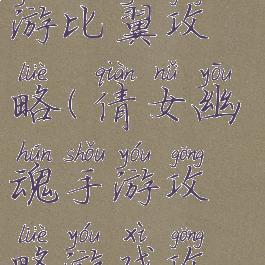 游比翼攻
lüè qiàn nǚ yōu
略(倩女幽
hún shǒu yóu gōng
魂手游攻
lüè yóu xì gōng
略游戏攻